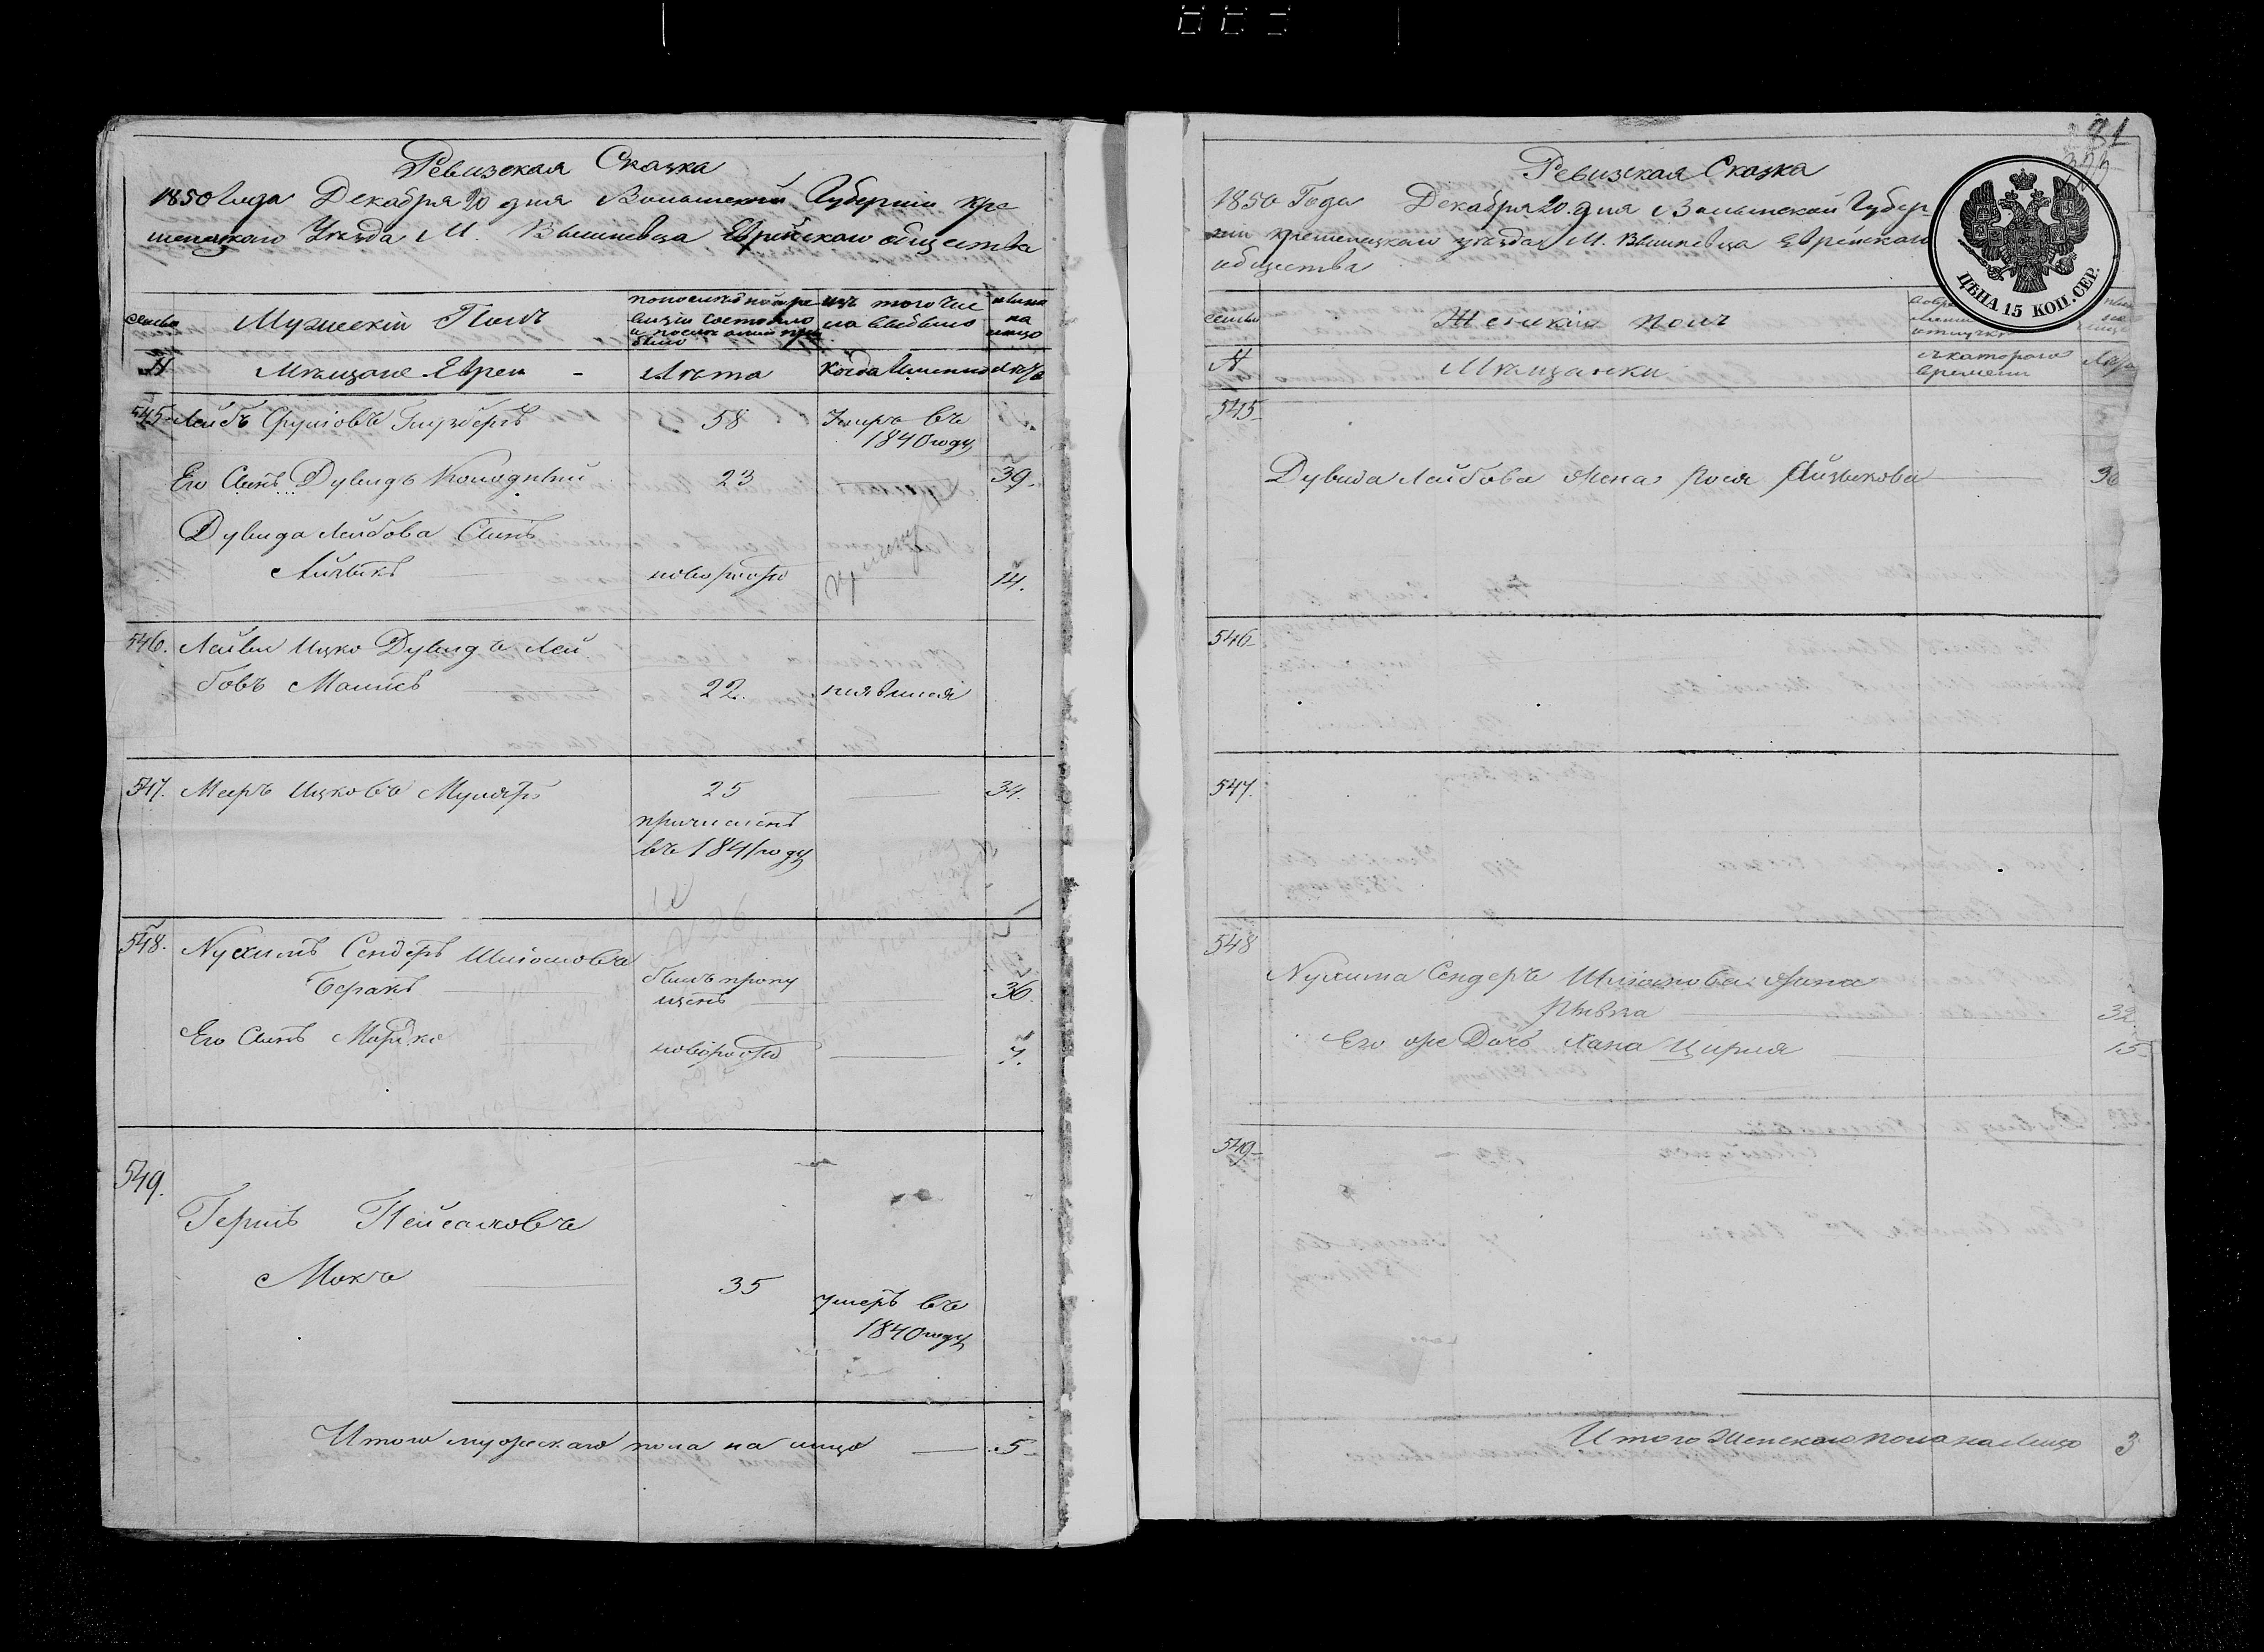 Ревизская Сказка
1850 Года Декабря 20 дня Волынской Губернии Кре
менецкаго Уезда М. Вишневца Еврейскаго общества
семьи
Мужескій Полъ
по последней ре
визіи состояло
и после оной при
было
изъ того чис
ла выбыло
ныне
на
лицо
№
Мещане Евреи -
Лета
когда именно
Лета
545. Лейбъ Сруліовъ
58
Умеръ въ
1840 году
Его Сынъ Дувидъ
23
39.
Дувида Лейбова Сынъ
Айзыкъ
новорожд
14.
546. Лейви Ицко Дувидъ Лей
бовъ
22.
неявился
547. Мееръ Ицковъ Муляръ
25
34.
причисленъ
въ 1841 году
548. Нухимъ Сендеръ Шліомовъ
Беракъ
былъ пропу
щенъ
36.
Его Сынъ Мордко
новорожд
7.
549.
Гершъ Пейсаховъ
Мокъ
35
умеръ въ
1840 году
Итого мужескаго пола на лицо
5
81
Ревизская Сказка
1850 Года Декабря 20 дня Волынской Губер-
ніи Кременецкаго уезда М. Вишневца Еврейскаго
общества
ЦѢНА 15 КОП. СЕР.
семьи
Женскій полъ
№
Мещанки
съ котораго
времени
Лета
545
Дувида Лейбова жена Рося Айзыкова
36
546
547.
548
Нухима Сендеръ Шліомова жена
Ривка
32.
Его же Дочь Хана Цирля
15
549
Итого Женскаго пола на Лицо
3